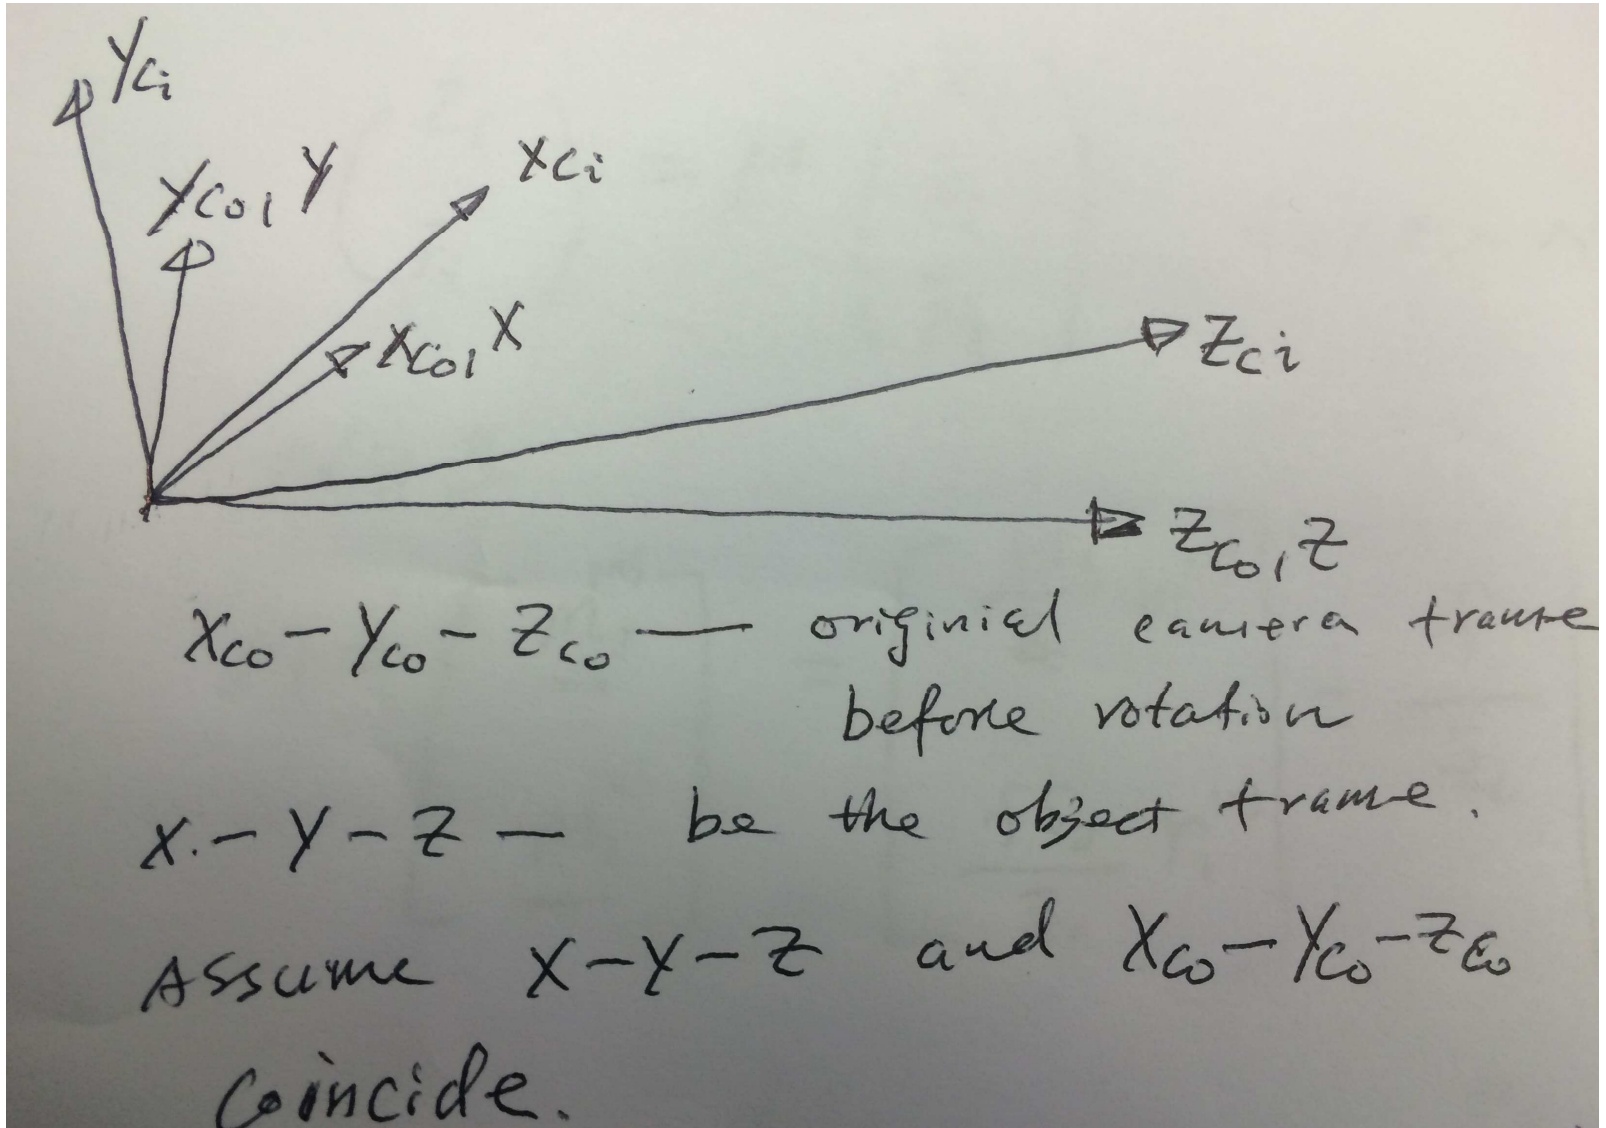 Yci
Yco, Y
Xci
Xco, X
Zci
Zco, Z
Xco – Yco – Zco — originial camera frame
before rotation
X. – Y – Z — be the object frame.
Assume X – Y – Z and Xco – Yco – Zco
Coincide.